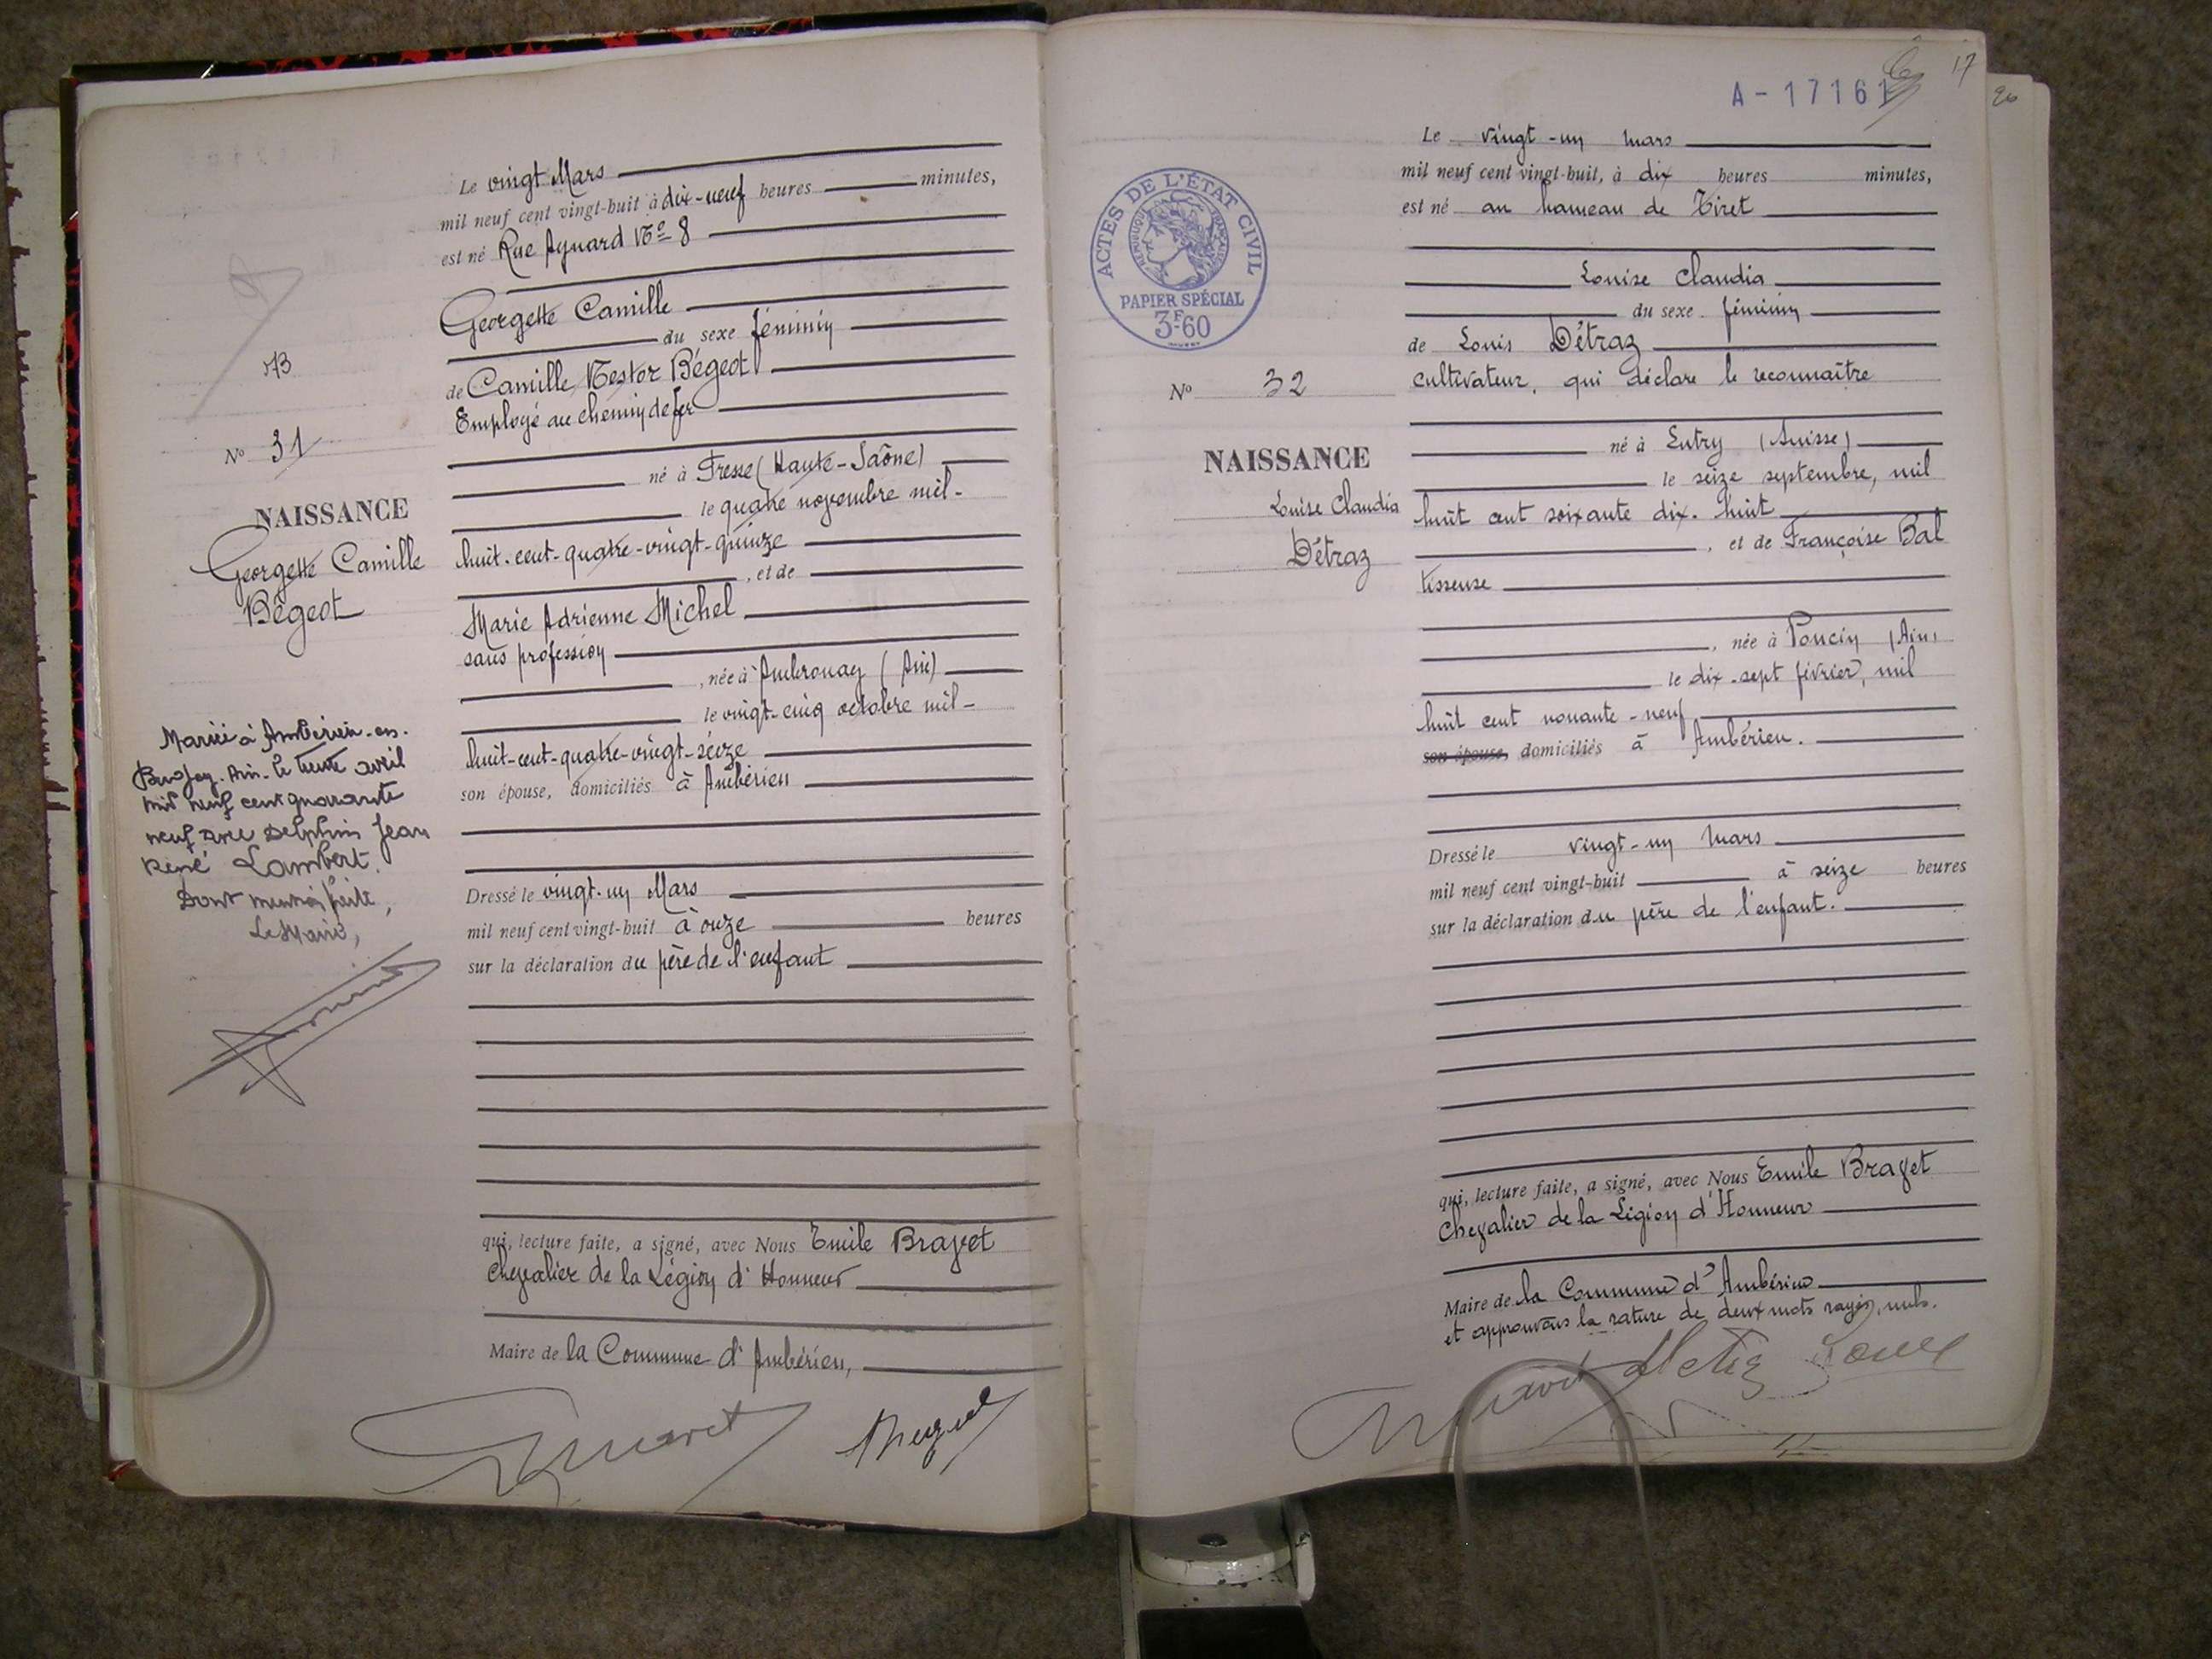 Le vingt Mars
mil neuf cent vingt-huit à dix-neuf heures minutes,
est né Rue Aynard No 8
Georgette Camille
du sexe féminin
de Camille Nestor Bégeot
Employé au chemin de fer
né à Fresse (Haute-Saône)
le quatre novembre mil-
huit-cent-quatre-vingt-quinze
, et de
Marie Adrienne Michel
sans profession
, née à Ambronay (Ain)
le vingt-cinq octobre mil-
huit-cent-quatre-vingt-seize
son épouse, domiciliés à Ambérieu
Dressé le vingt-un Mars
mil neuf cent vingt-huit à onze heures
sur la déclaration du père de l'enfant
qui, lecture faite, a signé, avec Nous Emile Bravet
Chevalier de la Légion d'Honneur
Maire de la Commune d'Ambérieu,
No 31
NAISSANCE
Georgette Camille
Bégeot
Mariée à Ambérieu-en-
Bugey-Ain-le trente avril
mil neuf cent quarante
neuf avec Delphin Jean
René Lambert.
Dont mention faite,
Le Maire,
A-17161
17
ACTES DE L'ÉTAT CIVIL
RÉPUBLIQUE FRANÇAISE
PAPIER SPÉCIAL
3F60
Le vingt-un mars
mil neuf cent vingt-huit, à dix heures minutes,
est né au hameau de Tiret
Louise Claudia
du sexe féminin
de Louis Détraz
cultivateur, qui déclare le reconnaître
né à Lutry (Suisse)
le seize septembre, mil
huit cent soixante dix-huit
, et de Françoise Bal
tisseuse
, née à Poncin (Ain)
le dix-sept février, mil
huit cent nonante-neuf
son épouse, domiciliés à Ambérieu.
Dressé le vingt-un mars
mil neuf cent vingt-huit à seize heures
sur la déclaration du père de l'enfant.
qui, lecture faite, a signé, avec Nous Emile Bravet
Chevalier de la Légion d'Honneur
Maire de la Commune d'Ambérieu
et approuvons la rature de deux mots rayés, nuls.
No 32
NAISSANCE
Louise Claudia
Détraz